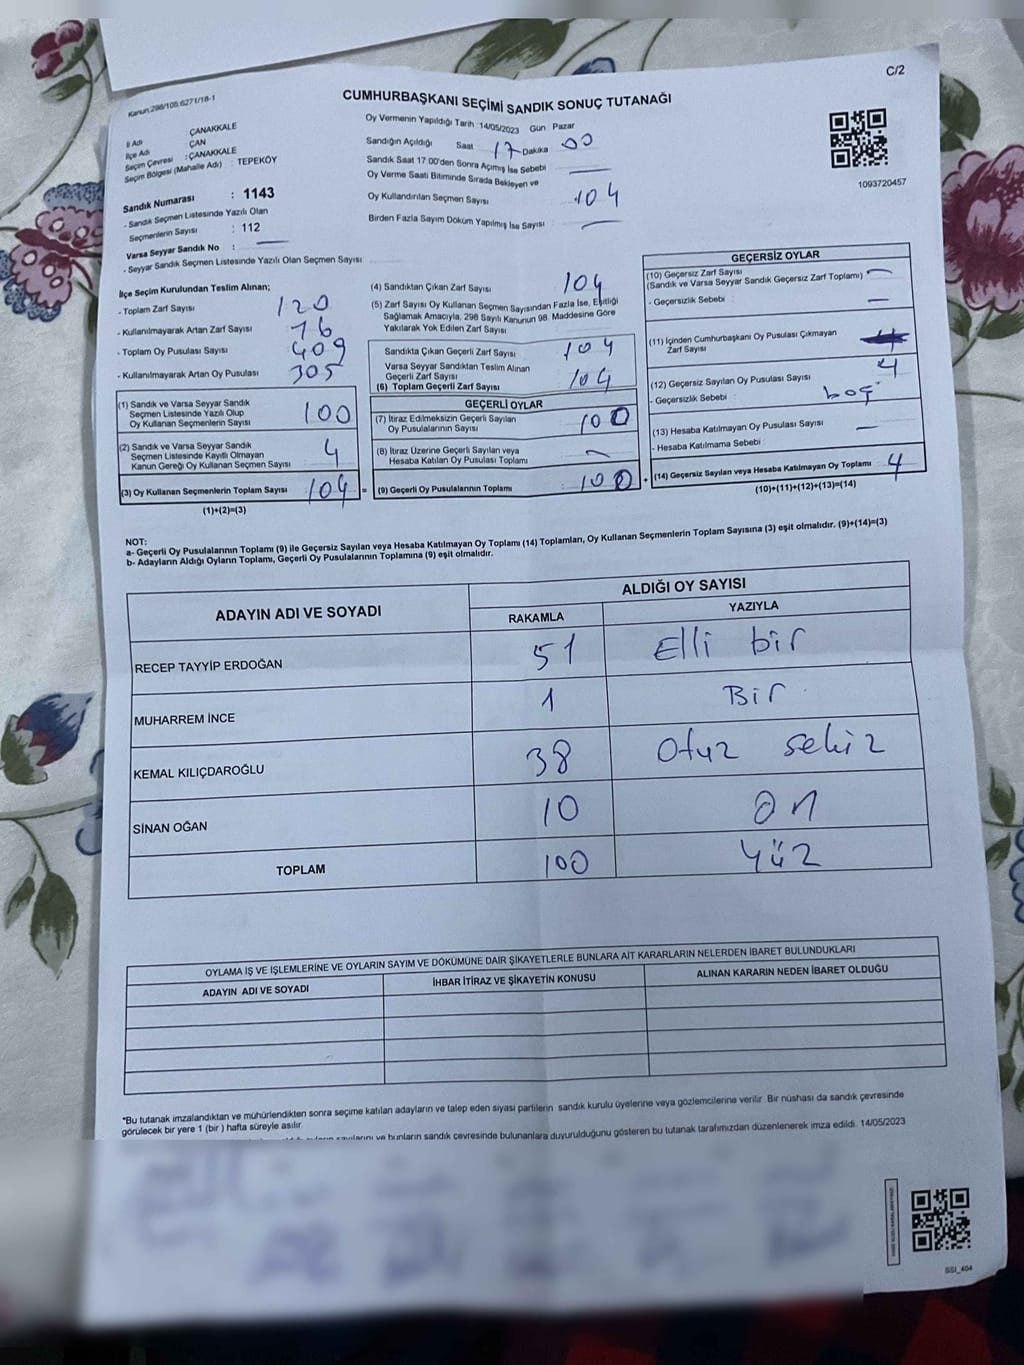 C/2
Kanun:298/105,6271/18-1
CUMHURBAŞKANI SEÇİMİ SANDIK SONUÇ TUTANAĞI
İl Adı ÇANAKKALE
İlçe Adı ÇAN
Seçim Çevresi :ÇANAKKALE
Seçim Bölgesi (Mahalle Adı) : TEPEKÖY
Oy Vermenin Yapıldığı Tarih :14/05/2023 Gün Pazar
Sandığın Açıldığı Saat 17 Dakika 00
Sandık Saat 17.00'den Sonra Açımış İse Sebebi
Oy Verme Saati Bitiminde Sırada Bekleyen ve
Oy Kullandırılan Seçmen Sayısı 104
Birden Fazla Sayım Döküm Yapılmış İse Sayısı :
1093720457
Sandık Numarası : 1143
- Sandık Seçmen Listesinde Yazılı Olan
Seçmenlerin Sayısı : 112
Varsa Seyyar Sandık No :
- Seyyar Sandık Seçmen Listesinde Yazılı Olan Seçmen Sayısı
İlçe Seçim Kurulundan Teslim Alınan;
- Toplam Zarf Sayısı 120
- Kullanılmayarak Artan Zarf Sayısı 16
- Toplam Oy Pusulası Sayısı 409
- Kullanılmayarak Artan Oy Pusulası 305
(1) Sandık ve Varsa Seyyar Sandık
Seçmen Listesinde Yazılı Olup
Oy Kullanan Seçmenlerin Sayısı 100
(2) Sandık ve Varsa Seyyar Sandık
Seçmen Listesinde Kayıtlı Olmayan
Kanun Gereği Oy Kullanan Seçmen Sayısı 4
(3) Oy Kullanan Seçmenlerin Toplam Sayısı 104 =
(1)+(2)=(3)
(4) Sandıktan Çıkan Zarf Sayısı 104
(5) Zarf Sayısı Oy Kullanan Seçmen Sayısından Fazla İse, Eşitliği
Sağlamak Amacıyla, 298 Sayılı Kanunun 98. Maddesine Göre
Yakılarak Yok Edilen Zarf Sayısı
Sandıkta Çıkan Geçerli Zarf Sayısı 104
Varsa Seyyar Sandıktan Teslim Alınan
Geçerli Zarf Sayısı
(6) Toplam Geçerli Zarf Sayısı 104
GEÇERLİ OYLAR
(7) İtiraz Edilmeksizin Geçerli Sayılan
Oy Pusulalarının Sayısı 100
(8) İtiraz Üzerine Geçerli Sayılan veya
Hesaba Katılan Oy Pusulası Toplamı
(9) Geçerli Oy Pusulalarının Toplamı 100 +
GEÇERSİZ OYLAR
(10) Geçersiz Zarf Sayısı
(Sandık ve Varsa Seyyar Sandık Geçersiz Zarf Toplamı)
- Geçersizlik Sebebi :
(11) İçinden Cumhurbaşkanı Oy Pusulası Çıkmayan
Zarf Sayısı
(12) Geçersiz Sayılan Oy Pusulası Sayısı 4
- Geçersizlik Sebebi : boş
(13) Hesaba Katılmayan Oy Pusulası Sayısı
- Hesaba Katılmama Sebebi :
(14) Geçersiz Sayılan veya Hesaba Katılmayan Oy Toplamı 4
(10)+(11)+(12)+(13)=(14)
NOT:
a- Geçerli Oy Pusulalarının Toplamı (9) ile Geçersiz Sayılan veya Hesaba Katılmayan Oy Toplamı (14) Toplamları, Oy Kullanan Seçmenlerin Toplam Sayısına (3) eşit olmalıdır. (9)+(14)=(3)
b- Adayların Aldığı Oyların Toplamı, Geçerli Oy Pusulalarının Toplamına (9) eşit olmalıdır.
ADAYIN ADI VE SOYADI ALDIĞI OY SAYISI
RAKAMLA YAZIYLA
RECEP TAYYİP ERDOĞAN 51 Elli bir
MUHARREM İNCE 1 Bir
KEMAL KILIÇDAROĞLU 38 Otuz sekiz
SİNAN OĞAN 10 On
TOPLAM 100 Yüz
OYLAMA İŞ VE İŞLEMLERİNE VE OYLARIN SAYIM VE DÖKÜMÜNE DAİR ŞİKAYETLERLE BUNLARA AİT KARARLARIN NELERDEN İBARET BULUNDUKLARI
ADAYIN ADI VE SOYADI İHBAR İTİRAZ VE ŞİKAYETİN KONUSU ALINAN KARARIN NEDEN İBARET OLDUĞU
*Bu tutanak imzalandıktan ve mühürlendikten sonra seçime katılan adayların ve talep eden siyasi partilerin sandık kurulu üyelerine veya gözlemcilerine verilir. Bir nüshası da sandık çevresinde
görülecek bir yere 1 (bir ) hafta süreyle asılır.
ve bunların sandık çevresinde bulunanlara duyurulduğunu gösteren bu tutanak tarafımızdan düzenlenerek imza edildi. 14/05/2023
SSI_404